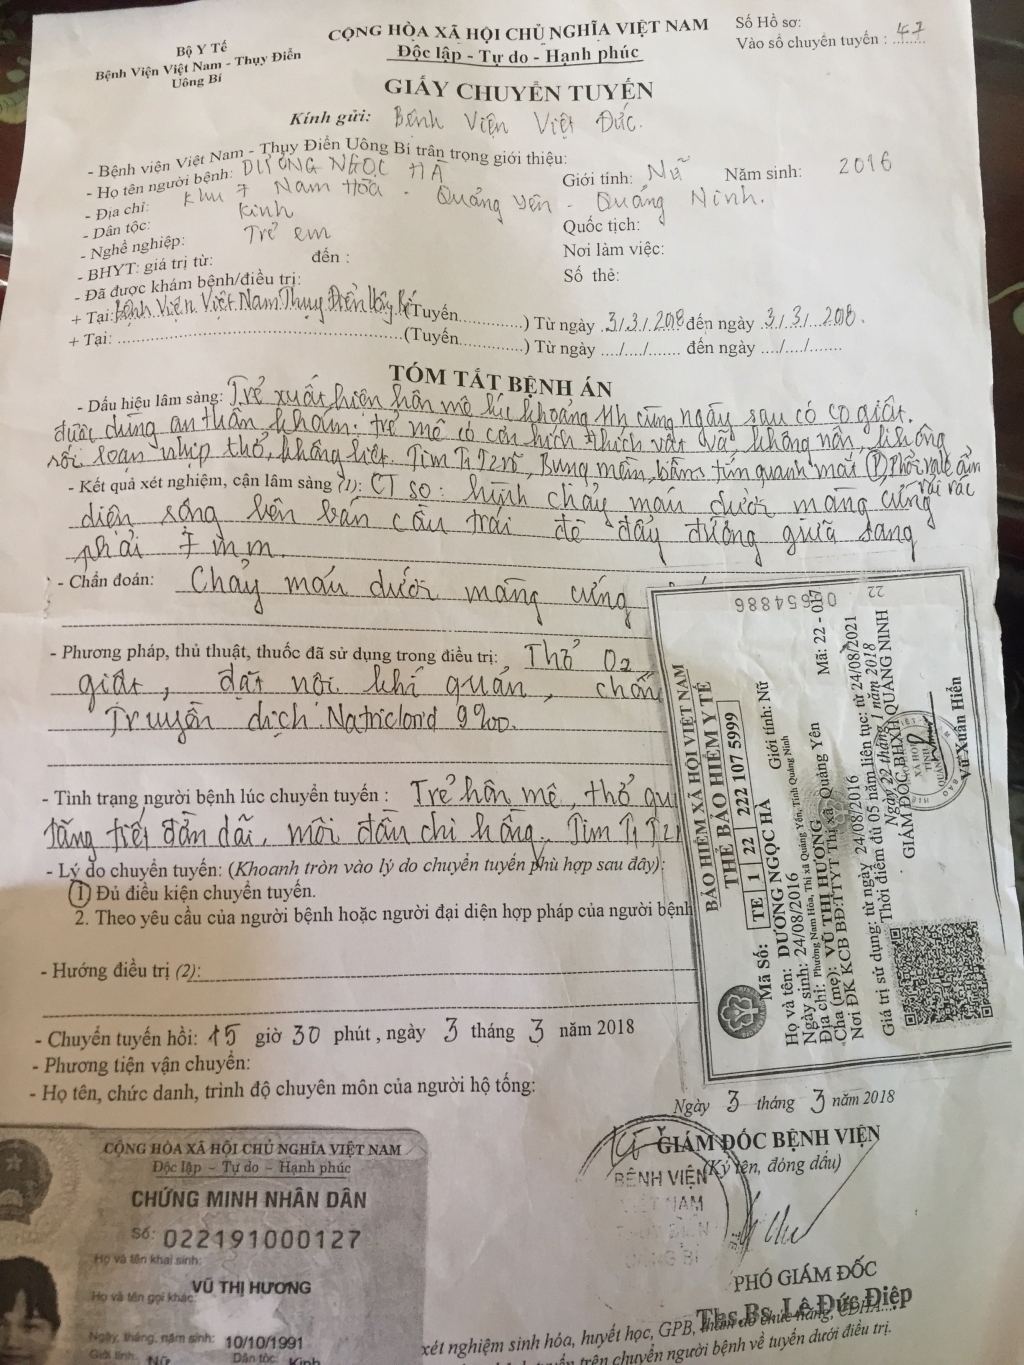 Bộ Y Tế
Bệnh Viện Việt Nam - Thụy Điển
Uông Bí
CỘNG HÒA XÃ HỘI CHỦ NGHĨA VIỆT NAM
Độc lập - Tự do - Hạnh phúc
Số Hồ sơ:
Vào sổ chuyển tuyến : 47
GIẤY CHUYỂN TUYẾN
Kính gửi: Bệnh Viện Việt Đức.
- Bệnh viện Việt Nam - Thụy Điển Uông Bí trân trọng giới thiệu:
- Họ tên người bệnh: DƯƠNG NGỌC HÀ Giới tính: Nữ Năm sinh: 2016
- Địa chỉ: Khu 7 Nam Hòa - Quảng Yên - Quảng Ninh.
- Dân tộc: Kinh Quốc tịch:
- Nghề nghiệp: Trẻ em Nơi làm việc:
- BHYT: giá trị từ: đến : Số thẻ:
- Đã được khám bệnh/điều trị:
+ Tại: Bệnh Viện Việt Nam Thụy Điển Uông Bí (Tuyến............) Từ ngày 3/3/2018 đến ngày 3/3/2018.
+ Tại: ............(Tuyến............) Từ ngày ..../..../....... đến ngày ..../..../.......
TÓM TẮT BỆNH ÁN
- Dấu hiệu lâm sàng: Trẻ xuất hiện hôn mê lúc khoảng 11h cùng ngày sau có co giật.
được dùng an thần khám: trẻ mê có cơn kích thích vật vã không nôn, không
rối loạn nhịp thở, không liệt. Tim T1 T2 rõ, Bụng mềm, bầm tím quanh mắt (P), Phổi rale ẩm
rải rác
- Kết quả xét nghiệm, cận lâm sàng (1): CT sọ: hình chảy máu dưới màng cứng
diện sống bên bán cầu trái đè đẩy đường giữa sang
phải 7 mm.
- Chẩn đoán: Chảy máu dưới màng cứng
- Phương pháp, thủ thuật, thuốc đã sử dụng trong điều trị: Thở O2
giật, đặt nội khí quản, chốn
Truyền dịch: Natriclorid 9‰.
- Tình trạng người bệnh lúc chuyển tuyến : Trẻ hôn mê, thở qu
tăng tiết đờm dãi, môi đầu chi hồng. Tim T1 T2 r
- Lý do chuyển tuyến: (Khoanh tròn vào lý do chuyển tuyến phù hợp sau đây):
1 Đủ điều kiện chuyển tuyến.
2. Theo yêu cầu của người bệnh hoặc người đại diện hợp pháp của người bệnh
- Hướng điều trị (2):
- Chuyển tuyến hồi: 15 giờ 30 phút, ngày 3 tháng 3 năm 2018
- Phương tiện vận chuyển:
- Họ tên, chức danh, trình độ chuyên môn của người hộ tống:
BẢO HIỂM XÃ HỘI VIỆT NAM
THẺ BẢO HIỂM Y TẾ
Mã Số: TE 1 22 222 107 5999
Họ và tên: DƯƠNG NGỌC HÀ
Ngày sinh: 24/08/2016 Giới tính: Nữ
Địa chỉ: Phường Nam Hòa, Thị xã Quảng Yên, Tỉnh Quảng Ninh
Cha (mẹ): VŨ THỊ HƯƠNG
Nơi ĐK KCB BĐ: TTYT Thị xã Quảng Yên Mã: 22 - 017
Giá trị sử dụng: từ ngày 24/08/2016
Thời điểm đủ 05 năm liên tục: từ 24/08/2021
Ngày 22 tháng 1 năm 2018
GIÁM ĐỐC BHXH QUẢNG NINH
Vũ Xuân Hiển
22
Ngày 3 tháng 3 năm 2018
GIÁM ĐỐC BỆNH VIỆN
(Ký tên, đóng dấu)
BỆNH VIỆN
VIỆT NAM
PHÓ GIÁM ĐỐC
Ths.Bs. Lê Đức Điệp
CỘNG HÒA XÃ HỘI CHỦ NGHĨA VIỆT NAM
Độc lập - Tự do - Hạnh phúc
CHỨNG MINH NHÂN DÂN
Số: 022191000127
Họ và tên khai sinh:
VŨ THỊ HƯƠNG
Họ và tên gọi khác:
Ngày, tháng, năm sinh: 10/10/1991
Giới tính: Nữ Dân tộc: Kinh
xét nghiệm sinh hóa, huyết học, GPB, thăm dò chức năng, CĐHA...
trên chuyển người bệnh về tuyến dưới điều trị.